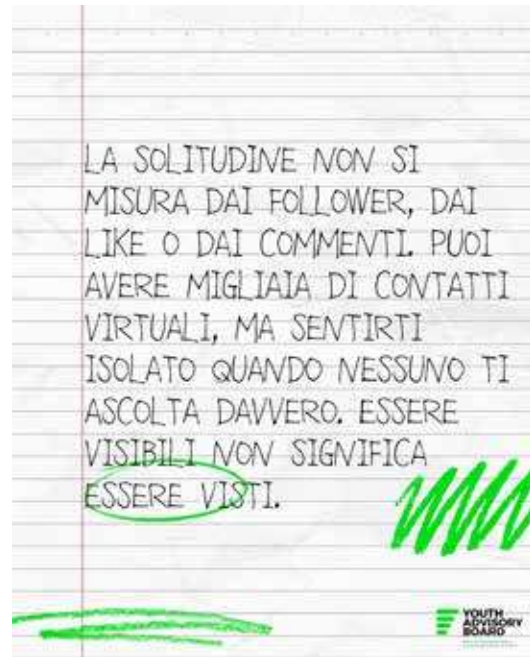 LA SOLITUDINE NON SI
MISURA DAI FOLLOWER, DAI
LIKE O DAI COMMENTI. PUOI
AVERE MIGLIAIA DI CONTATTI
VIRTUALI, MA SENTIRTI
ISOLATO QUANDO NESSUNO TI
ASCOLTA DAVVERO. ESSERE
VISIBILI NON SIGNIFICA
ESSERE VISTI.
YOUTH
ADVISORY
BOARD